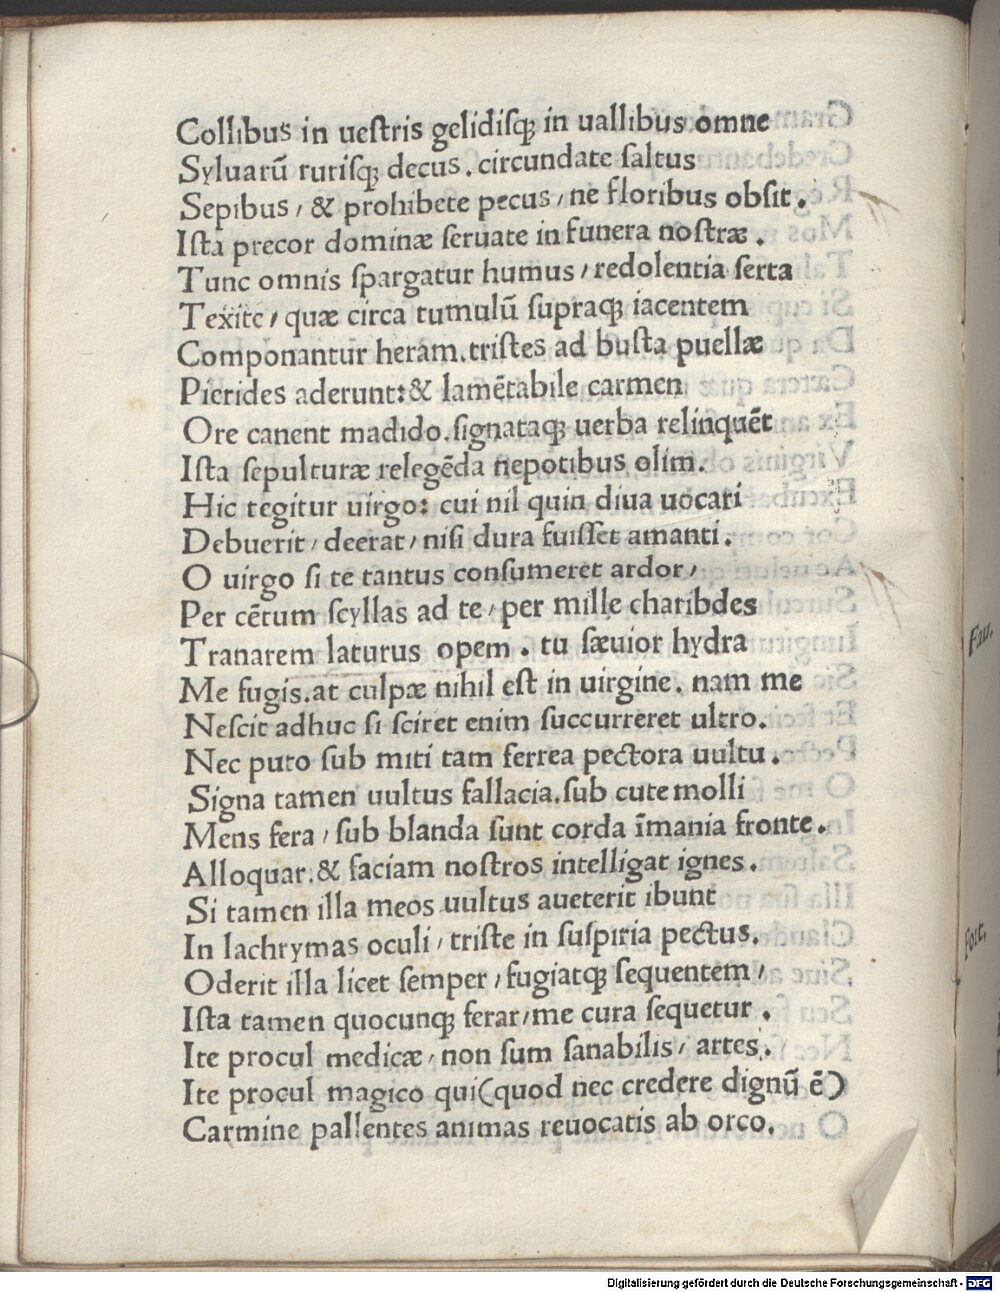 Collibus in ueſtris gelidiſqꝫ in uallibus omne
Syluarū ruriſqꝫ decus. circundate ſaltus
Sepibus, & prohibete pecus, ne floribus obſit.
Iſta precor dominæ ſeruate in funera noſtræ.
Tunc omnis ſpargatur humus, redolentia ſerta
Texite, quæ circa tumulū ſupraqꝫ iacentem
Componantur heram. triſtes ad buſta puellæ
Pierides aderunt: & lamētabile carmen
Ore canent madido. ſignataqꝫ uerba relinquēt
Iſta ſepulturæ relegēda nepotibus olim.
Hic tegitur uirgo: cui nil quin diua uocari
Debuerit, deerat, niſi dura fuiſſet amanti.
O uirgo ſi te tantus conſumeret ardor,
Per cētum ſcyllas ad te, per mille charibdes
Tranarem laturus opem. tu ſæuior hydra
Me fugis. at culpæ nihil eſt in uirgine. nam me
Neſcit adhuc ſi ſciret enim ſuccurreret ultro.
Nec puto ſub miti tam ferrea pectora uultu.
Signa tamen uultus fallacia. ſub cute molli
Mens fera, ſub blanda ſunt corda īmania fronte.
Alloquar. & faciam noſtros intelligat ignes.
Si tamen illa meos uultus aueterit ibunt
In lachrymas oculi, triſte in ſuſpiria pectus.
Oderit illa licet ſemper, fugiatqꝫ ſequentem,
Iſta tamen quocunqꝫ ferar, me cura ſequetur.
Ite procul medicæ, non ſum ſanabilis, artes.
Ite procul magico qui (quod nec credere dignū ē)
Carmine pallentes animas reuocatis ab orco.
Fau.
Fort.
Digitalisierung gefördert durch die Deutsche Forschungsgemeinschaft - DFG